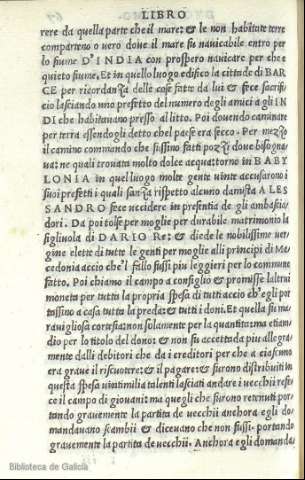 LIBRO
rere da quella parte che il mare: & le non habitate terre
comparteno o uero doue il mare su nauicabile entro per
lo fiume D'INDIA con prospero nauicare per che e
quieto fiume, Et in quello luogo edifico la cittade di BAR
CE per ricordanza delle cose fatte da lui & fece sacrifi
cio lasciando uno prefetto del numero degli amici agli IN
DI che habitauano presso al litto. Poi douendo caminare
per terra essendogli detto chel paese era secco. Per mezzo
il camino commando che fussino fatti pozzi doue bisogna
ua: ne quali trouata molto dolce acqua: torno in BABY
LONIA in quel luogo molte gente uinte accusarono i
suoi prefetti i quali sanza rispetto alcuno damista ALES
SANDRO fece uccidere in presentia de gli ambascia
dori. Da poi tolse per moglie per durabile matrimonio la
figliuola di DARIO Re: & diede le nobilissime uer
gine elette di tutte le genti per moglie alli principi di Ma
cedonia accio che'l fallo fussi piu leggieri per lo commune
fatto. Poi chiamo il campo a consiglio & promisse laltrui
moneta per tutto la propria spesa di tutti accio ch'egli por
tassino a casa tutta la preda: & tutti i doni. Et quella fu ma
rauigliosa cortesia: non solamente per la quantita: ma etian
dio per lo titolo del dono: & non fu accettada piu allegra
mente dalli debitori che da i creditori per che a ciascuno
era graue il riscuotere: & il pagare: & furono distribuiti in
questa spesa uintimilia talenti lasciati andare i uecchi restitu
ce il campo di giouani: ma quegli che furono retenuti por
tando grauemente la partita de uecchii anchora egli do
mandauano scambii & diceuano che non fussi. portando
grauemente la partita de uecchii. Anchora egli domanda
Biblioteca de Galicia